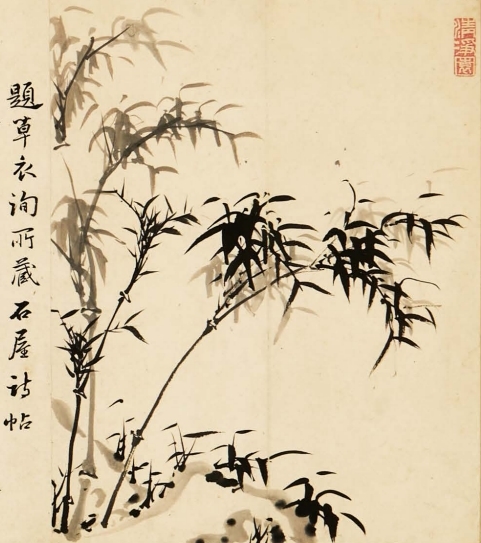 題草衣詢所藏石屋詩帖